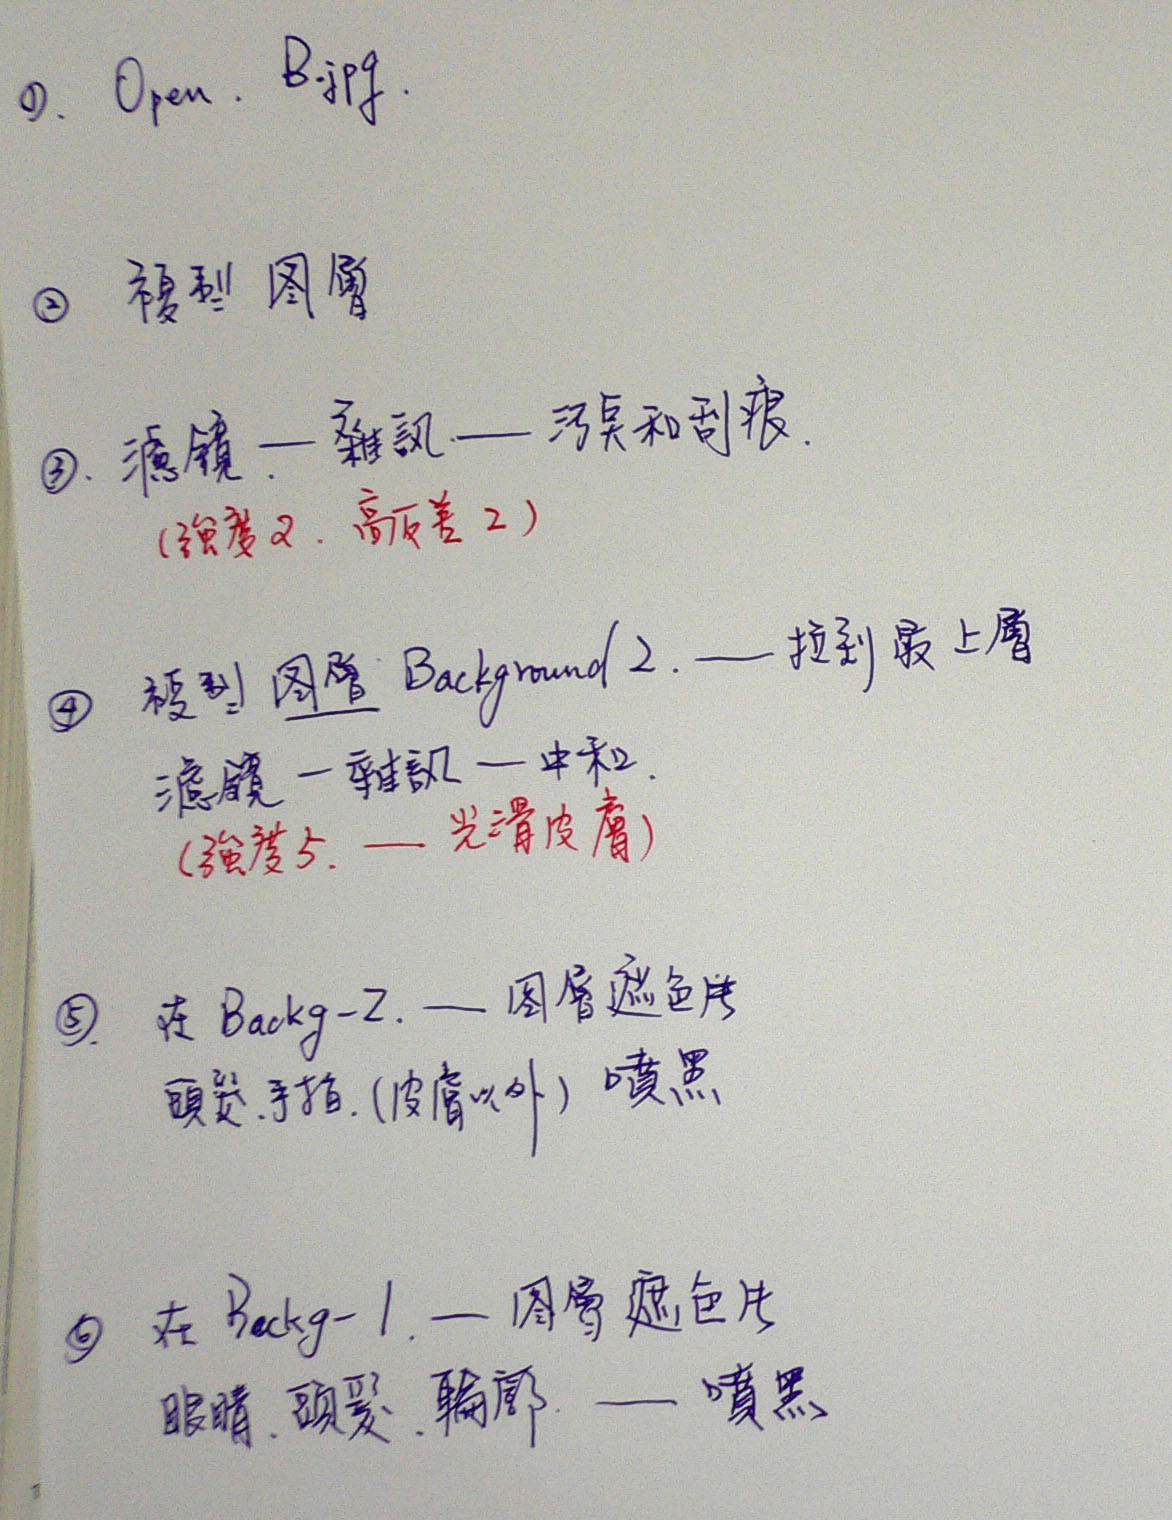 ①. Open. B.jpg.
② 複製 图層
③. 濾鏡 — 雜訊 — 污点和刮痕.
(強度2. 高反差2)
④ 複製 图層 Background 2. — 拉到最上層
濾鏡 — 雜訊 — 中和.
(強度5. — 光滑皮膚)
⑤. 在 Backg-2. — 图層遮色片
頭髮.手指.(皮膚以外) 噴黑
⑥ 在 Backg-1. — 图層遮色片
眼睛.頭髮.輪廓. — 噴黑